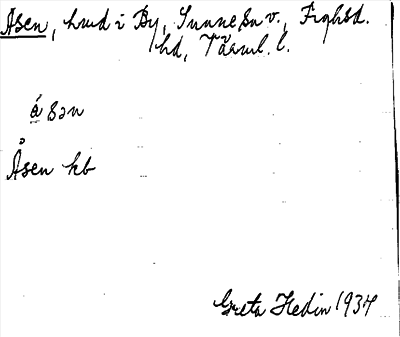 Åsen, hmd i By, Sunne sn v., Fryksd.
hd, Värml. l.
ǻsən
Åsen kb
Greta Hedin 1934